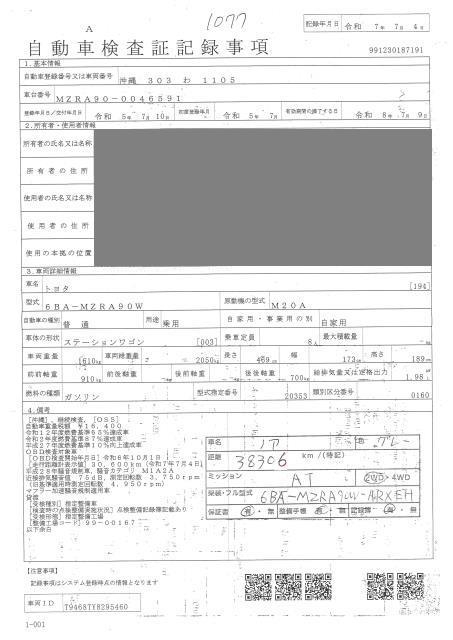 1077
A
記録年月日 令和 7年 7月 4日
自動車検査証記録事項
991230187191
1.基本情報
自動車登録番号又は車両番号 沖縄 303 わ 1105
車台番号 MZRA90-0046591
登録年月日/交付年月日 令和 5年 7月 10日 初度登録年月 令和 5年 7月 有効期間の満了する日 令和 8年 7月 9日
2.所有者・使用者情報
所有者の氏名又は名称
所有者の住所
使用者の氏名又は名称
使用者の住所
使用の本拠の位置
3.車両詳細情報
車名 トヨタ [194]
型式 6BA-MZRA90W 原動機の型式 M20A
自動車の種別 普通 用途 乗用 自家用・事業用の別 自家用
車体の形状 ステーションワゴン [003] 乗車定員 8人 最大積載量 -
車両重量 1610kg 車両総重量 2050kg 長さ 469cm 幅 173cm 高さ 189cm
前前軸重 910kg 前後軸重 後前軸重 後後軸重 700kg 総排気量又は定格出力 1.98
燃料の種類 ガソリン 型式指定番号 20353 類別区分番号 0160
4.備考
[沖縄],継続検査,[OSS]
自動車重量税額 ¥16,400
令和12年度燃費基準65%達成車
令和2年度燃費基準87%達成車
平成27年度燃費基準10%向上達成車
OBD検査対象車
[OBD検査開始年月日]令和6年10月1日
[走行距離計表示値]30,600km(令和7年7月4日)
平成28年騒音規制車,騒音カテゴリ M1A2A
近接排気騒音値 75dB,測定回転数 3,750rpm
(旧基準適用時測定回転数 4,950rpm)
マフラー加速騒音規制適用車
[受検種別]指定整備車
[検査時の点検整備実施状況]点検整備記録簿記載あり
[受検形態]指定整備工場
[整備工場コード]99-00167
以下余白
車名 ノア 色 グレー
距離 38306 km/(特記)
ミッション AT 2WD・4WD
保証書 有・無 整備手帳 有・無 記録簿 有・無
【注意事項】
記録事項はシステム登録時点の情報となります
車両ID T9468TY8295460
1-001